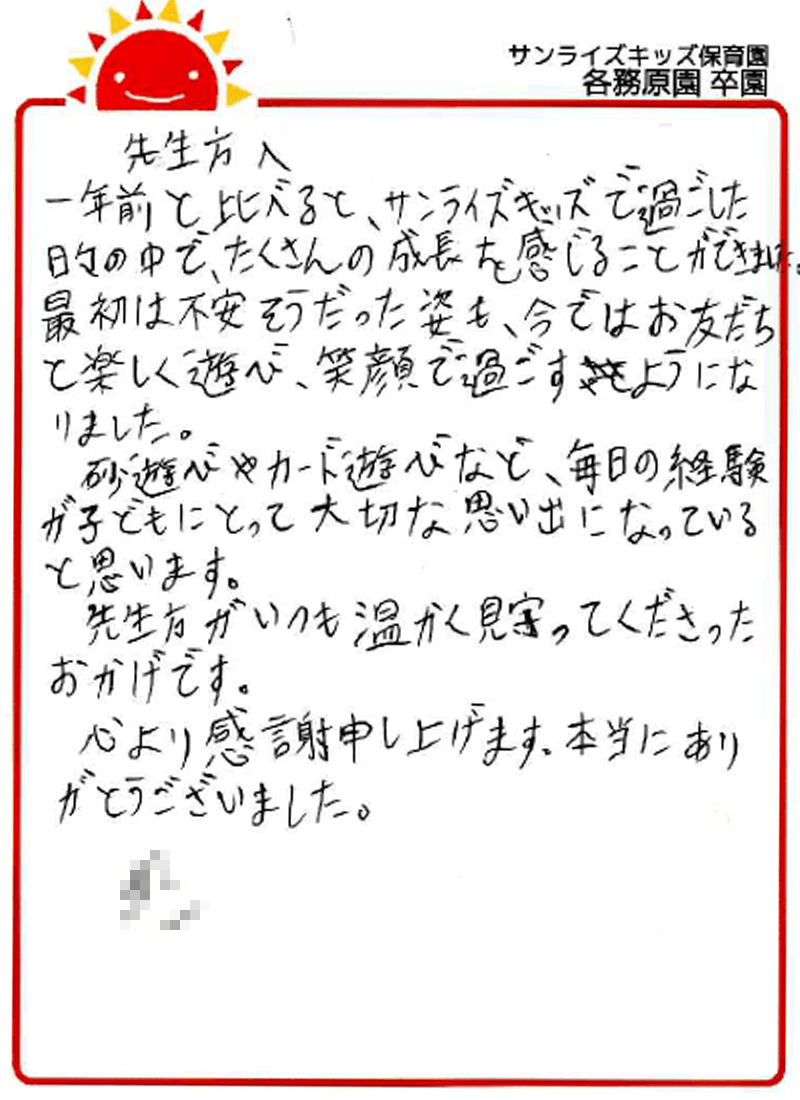 サンライズキッズ保育園
各務原園 卒園
先生方へ
一年前と比べると、サンライズキッズで過ごした
日々の中で、たくさんの成長を感じることができました。
最初は不安そうだった姿も、今ではお友だち
と楽しく遊べ、笑顔で過ごすようにな
りました。
砂遊べやカード遊べなど、毎日の経験
が子どもにとって大切な思い出になっている
と思います。
先生方がいつも温かく見守ってくださった
おかげです。
心より感謝申し上げます。本当にあり
がとうございました。